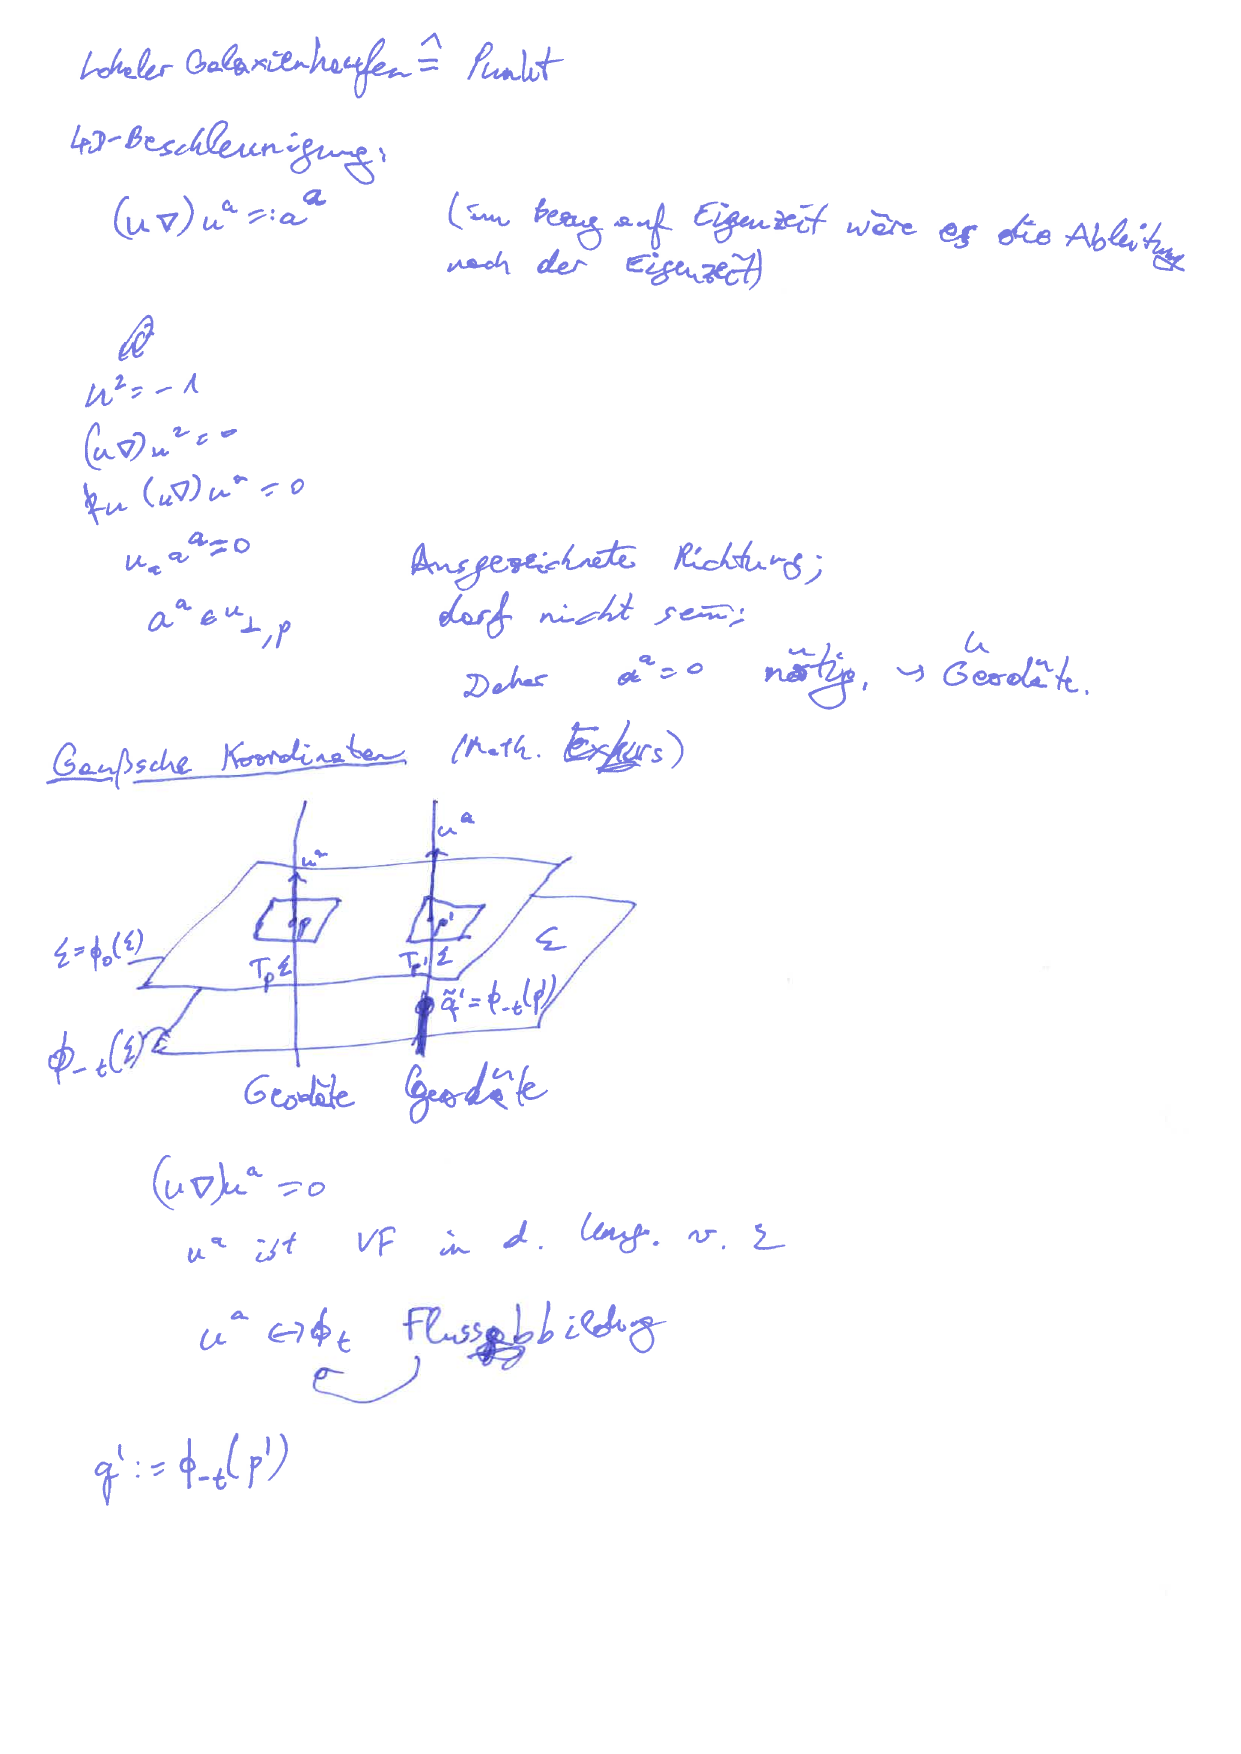 Lokaler Galaxienhaufen ≙ Punkt
4D-Beschleunigung:
(u∇)uᵃ =: aᵃ (im bezug auf Eigenzeit wäre es die Ableitung
nach der Eigenzeit)
u² = -1
(u∇)u² = 0
2u (u∇)uᵃ = 0
uₐaᵃ = 0 Ausgezeichnete Richtung;
aᵃ ∈ u⊥,p darf nicht sein;
Daher aᵃ = 0 nötig. → Geodäte.
Gaußsche Koordinaten (Math. Exkurs)
uᵃ uᵃ
p p'
Σ = ϕ₀(Σ) TₚΣ Tₚ'Σ Σ
q̃' = ϕ₋ₜ(p')
ϕ₋ₜ(Σ)
Geodäte Geodäte
(u∇)uᵃ = 0
uᵃ ist VF in d. Umg. v. Σ
uᵃ ↔ ϕₜ Flussabbildung
q' := ϕ₋ₜ(p')